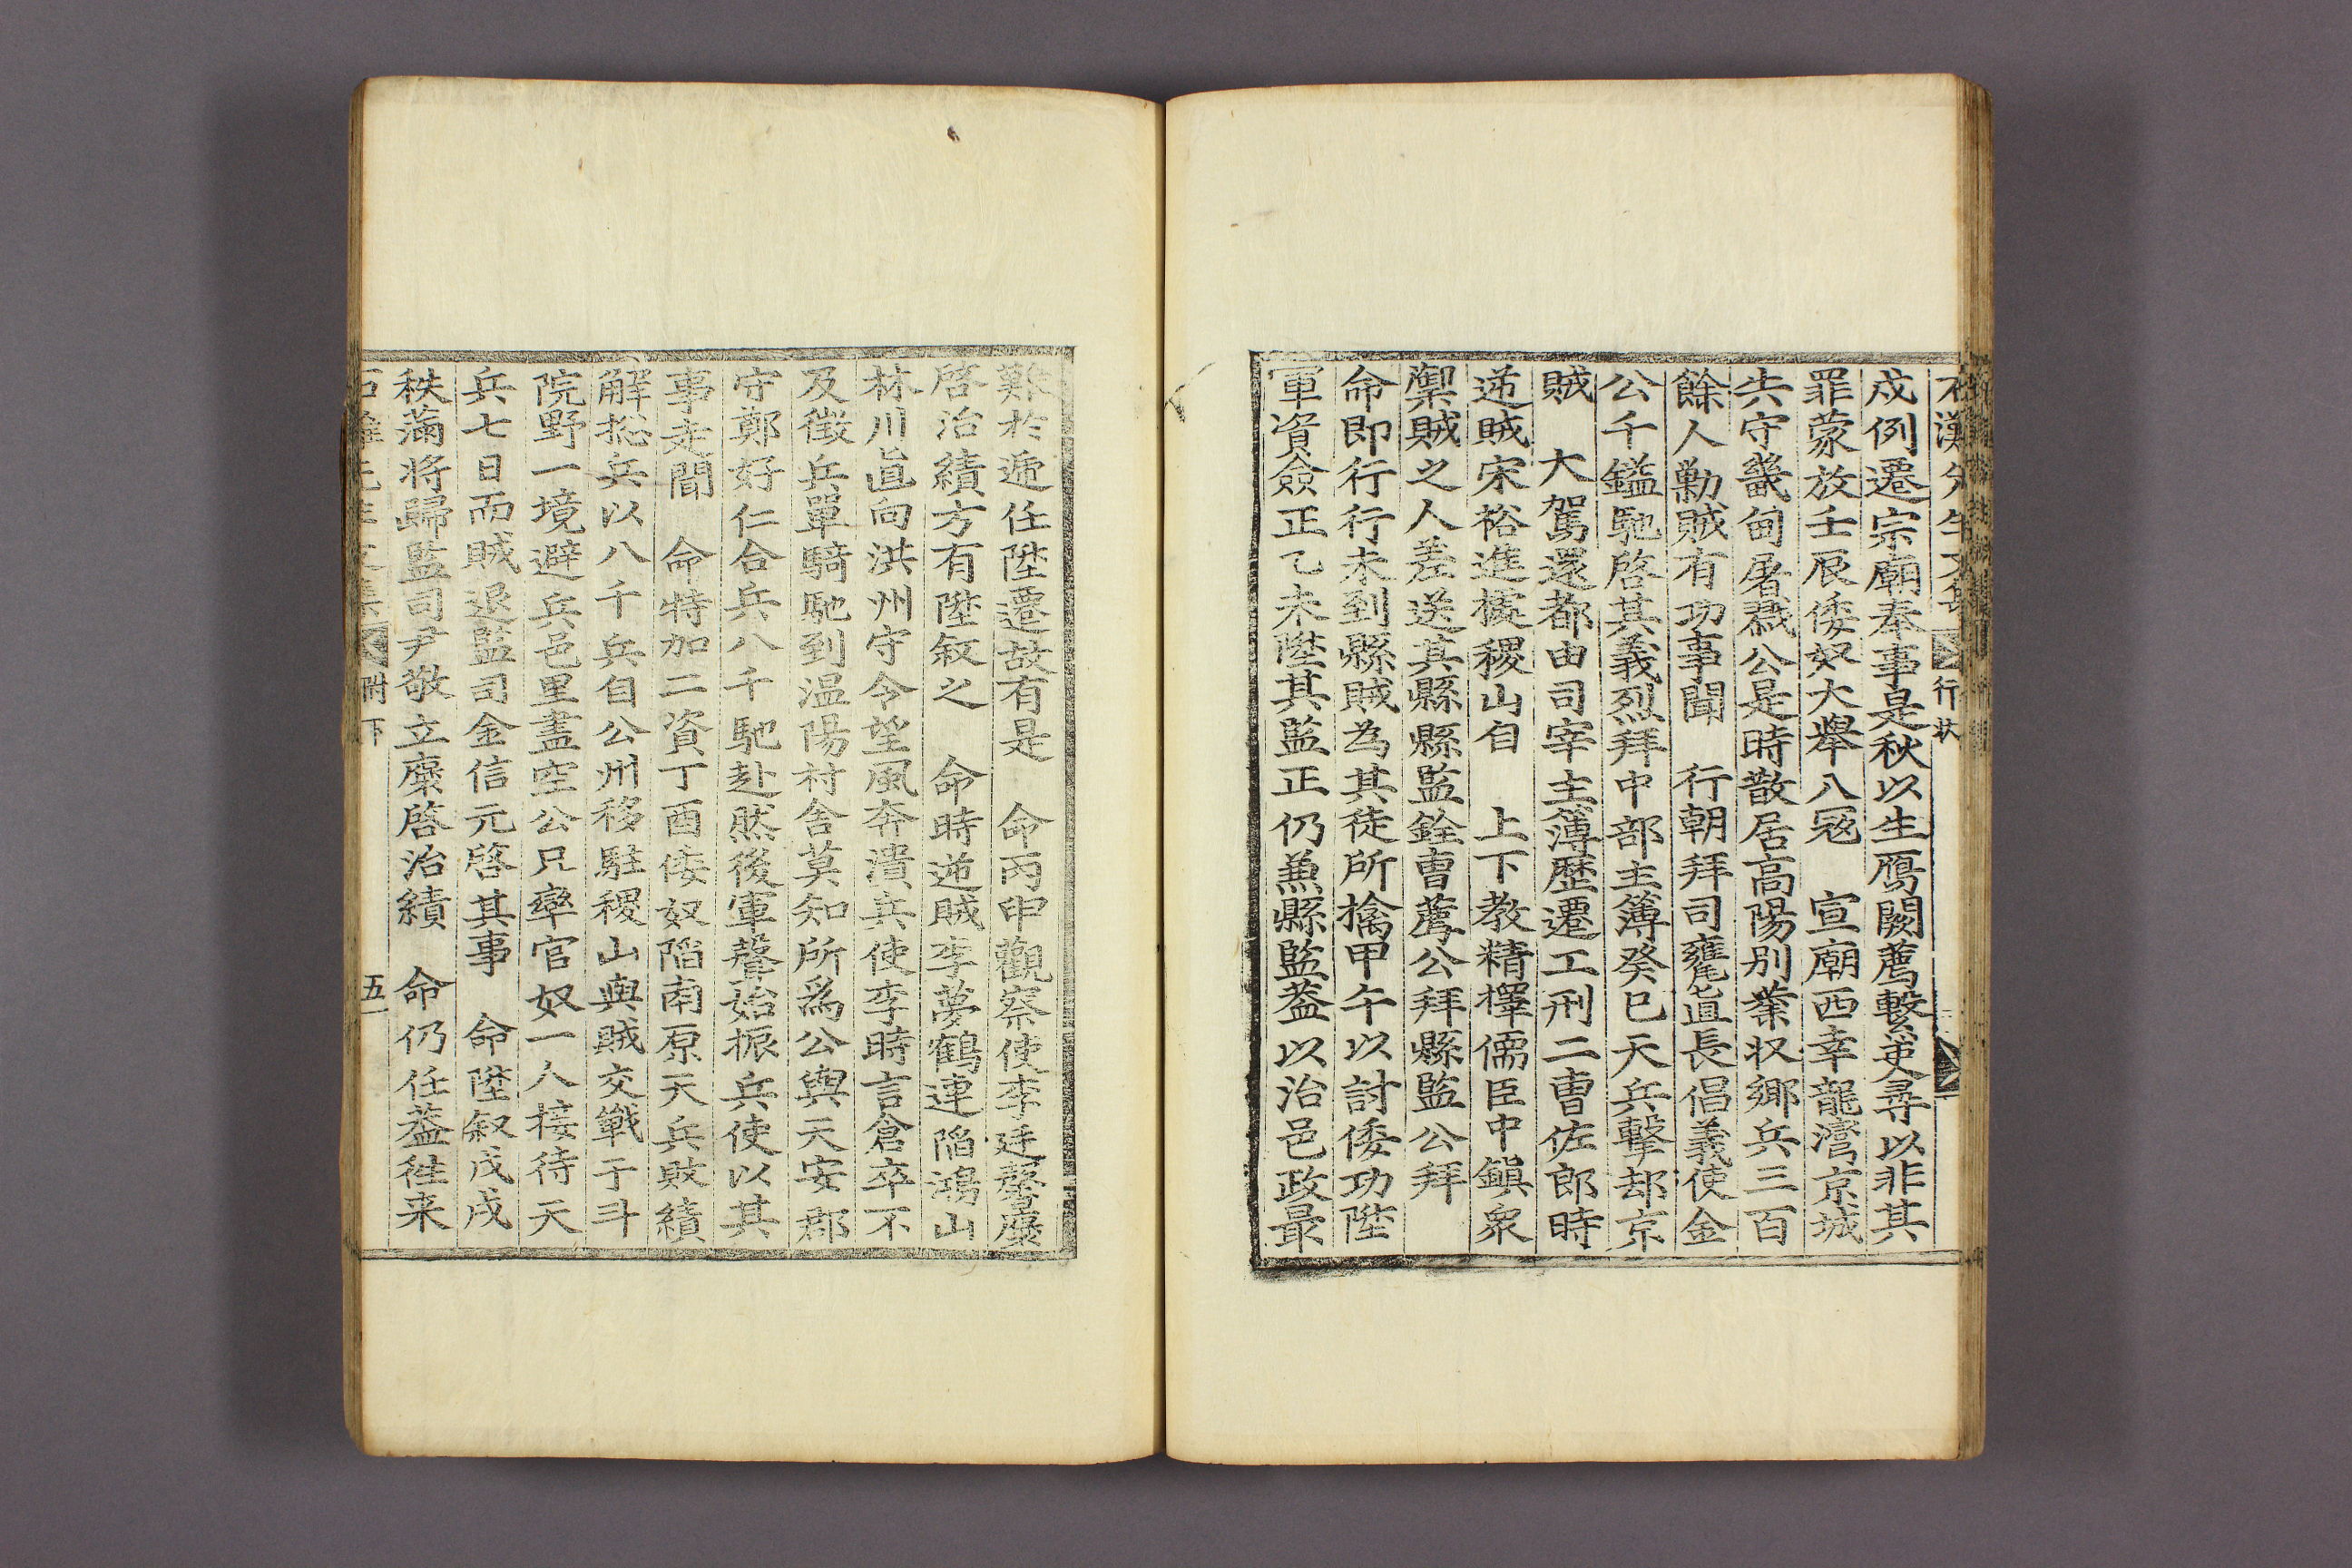 行狀
成例遷宗廟奉事是秋以生鴈闕薦繫英尋以非其
罪蒙放壬辰倭奴大擧入冦 宣廟西幸龍灣京城
失守畿甸屠戮公是時散居高陽別業収鄉兵三百
餘人勦賊有功事聞 行朝拜司甕直長倡義使金
公千鎰馳啓其義烈拜中部主簿癸巳天兵擊却京
賊 大駕還都由司宰主簿歷遷工刑二曹佐郎時
逆賊宋裕進據稷山自 上下教精擇儒臣中鎭衆
禦賊之人差送其縣縣監銓曹薦公拜縣監公拜
命即行行未到縣賊為其徒所擒甲午以討倭功陞
軍資僉正乙未陞其監正仍兼縣監盖以治邑政最
難於遞任陞遷故有是 命丙申觀察使李廷馨褒
啓治績方有陞叙之 命時逆賊李夢鶴連陷鴻山
林川直向洪州守令望風奔潰兵使李時言倉卒不
及徵兵單騎馳到温陽村舍莫知所爲公與天安郡
守鄭好仁合兵八千馳赴然後軍聲始振兵使以其
事走聞 命特加二資丁酉倭奴陷南原天兵敗績
解摠兵以八千兵自公州移駐稷山與賊交戰于斗
院野一境避兵邑里盡空公只率官奴一人接待天
兵七日而賊退監司金信元啓其事 命陞叙戊戌
秩滿將歸監司尹敬立褒啓治績 命仍任盖徃来
附下 五